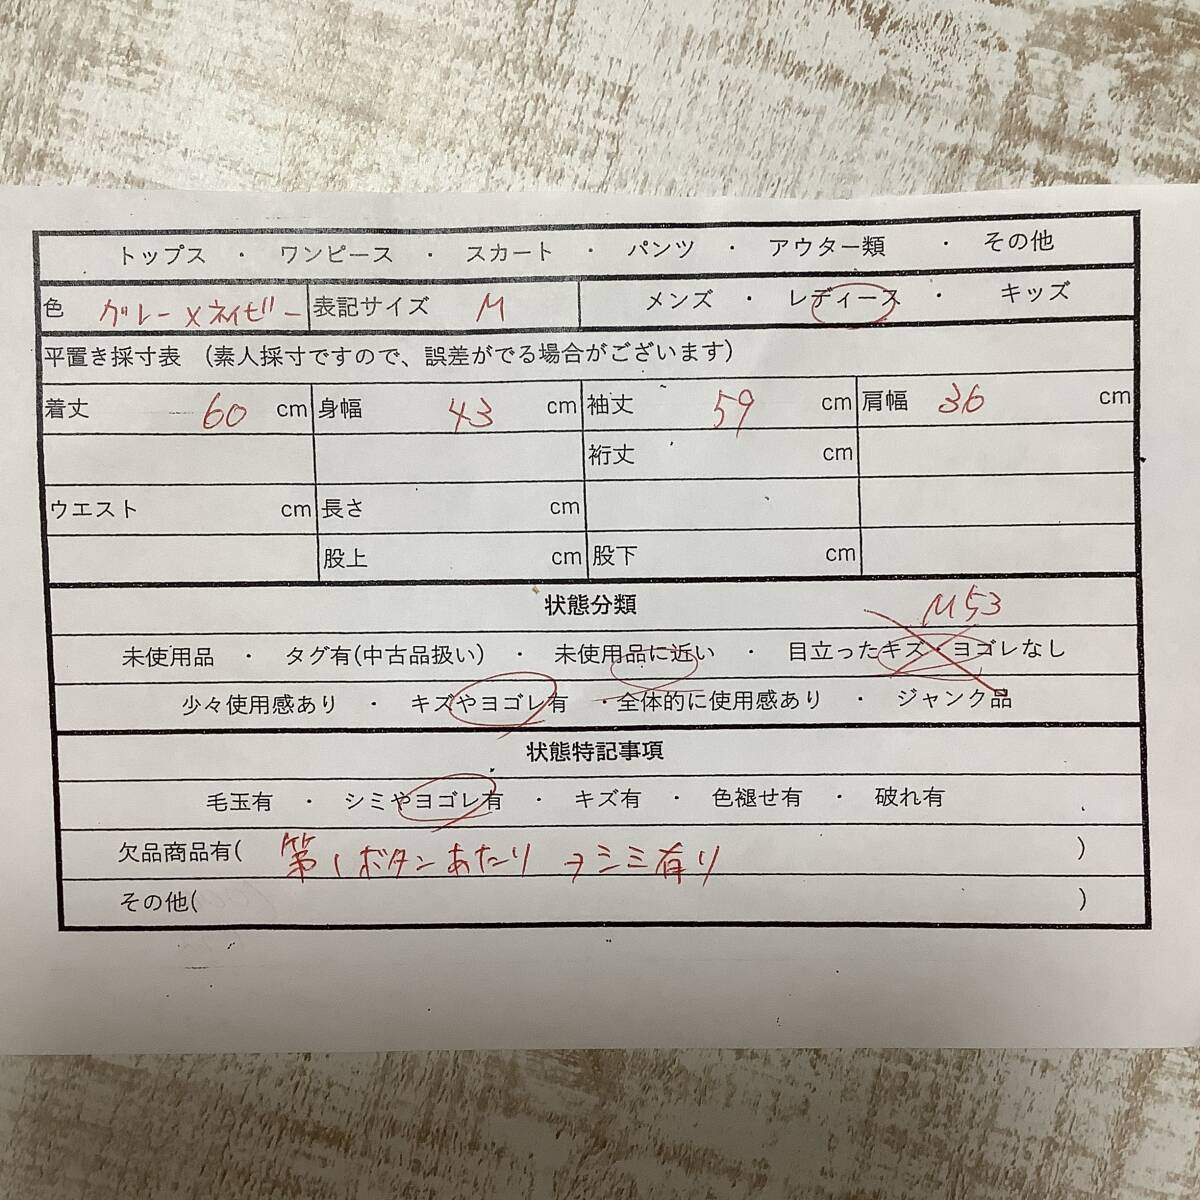 トップス ・ ワンピース ・ スカート ・ パンツ ・ アウター類 ・ その他
色 グレー×ネイビー 表記サイズ M メンズ ・ レディース ・ キッズ
平置き採寸表 （素人採寸ですので、誤差がでる場合がございます）
着丈 60 cm 身幅 43 cm 袖丈 59 cm 肩幅 36 cm
裄丈 cm
ウエスト cm 長さ cm
股上 cm 股下 cm
状態分類
M53
未使用品 ・ タグ有(中古品扱い) ・ 未使用品に近い ・ 目立ったキズ・ヨゴレなし
少々使用感あり ・ キズやヨゴレ有 ・ 全体的に使用感あり ・ ジャンク品
状態特記事項
毛玉有 ・ シミやヨゴレ有 ・ キズ有 ・ 色褪せ有 ・ 破れ有
欠品商品有( 第1ボタンあたり シミ有り )
その他( )